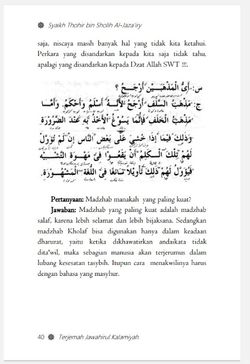 Syaikh Thohir bin Sholih Al-Jaza'iry
saja, niscaya masih banyak hal yang tidak kita ketahui.
Perkara yang disandarkan kepada kita saja tidak tahu,
apalagi yang disandarkan kepada Dzat Allah SWT !!!.
س: أَيُّ الْمَذْهَبَيْنِ أَرْجَحُ ؟
ج: مَذْهَبُ السَّلَفِ أَرْجَحُ لِأَنَّهُ أَسْلَمُ وَأَحْكَمُ. وَأَمَّا
مَذْهَبُ الْخَلَفِ فَإِنَّمَا يَسُوغُ الْأَخْذُ بِهِ عِنْدَ الضَّرُورَةِ
وَذَلِكَ فِيمَا إِذَا خُشِيَ عَلَى بَعْضِ النَّاسِ إِنْ لَمْ تُؤَوَّلْ
لَهُمْ تِلْكَ الْكَلِمُ أَنْ يَقَعُوا فِي مَهْوَاةِ التَّشْبِيهِ
فَيُؤَوَّلُ لَهُمْ ذَلِكَ تَأْوِيلًا سَائِغًا فِي اللُّغَةِ الْمَشْهُورَةِ.
Pertanyaan: Madzhab manakah yang paling kuat?
Jawaban: Madzhab yang paling kuat adalah madzhab
salaf, karena lebih selamat dan lebih bijaksana. Sedangkan
madzhab Kholaf bisa digunakan hanya dalam keadaan
dharurat, yaitu ketika dikhawatirkan andaikata tidak
dita'wil, maka sebagian manusia akan terjerumus dalam
lubang kesesatan tasybih. Itupun cara menakwilnya harus
dengan bahasa yang masyhur.
40 Terjemah Jawahirul Kalamiyah